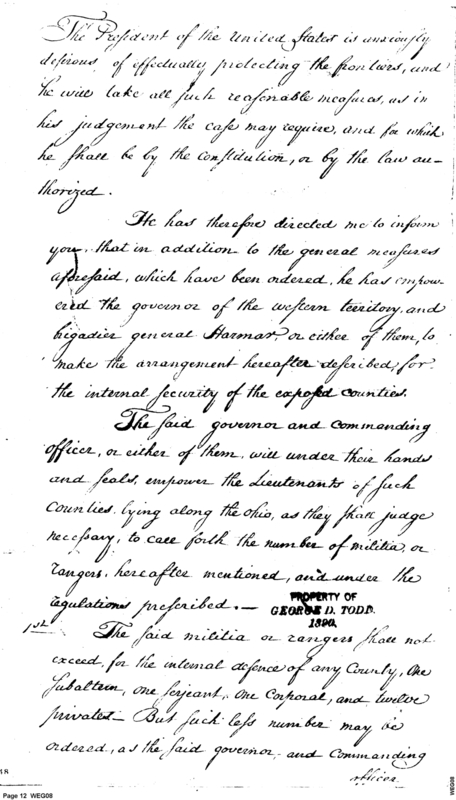 The President of the United States is anxiously
desirous of effectually protecting the frontiers, and
he will take all such reasonable measures, as in
his judgement the case may require, and for which
he shall be by the constitution, or by the law au-
thorized.
He has therefore directed me to inform
you, that in addition to the general measures
aforesaid, which have been ordered, he has empow-
ered the governor of the western territory, and
brigadier general Harmar, or either of them, to
make the arrangement hereafter described, for
the internal security of the exposed counties.
The said governor and commanding
officer, or either of them, will under their hands
and seals, empower the Lieutenants of such
Counties, lying along the Ohio, as they shall judge
necessary, to call forth the number of militia, or
rangers, hereafter mentioned, and under the
regulations prescribed. —
PROPERTY OF
GEORGE D. TODD.
1890.
1st. The said militia or rangers shall not
exceed, for the internal defence of any County, One
Subaltern, one Serjeant, One Corporal, and twelve
privates — But such less number may be
ordered, as the said governor and commanding
officer
18
Page 12 WEG08
WEG08